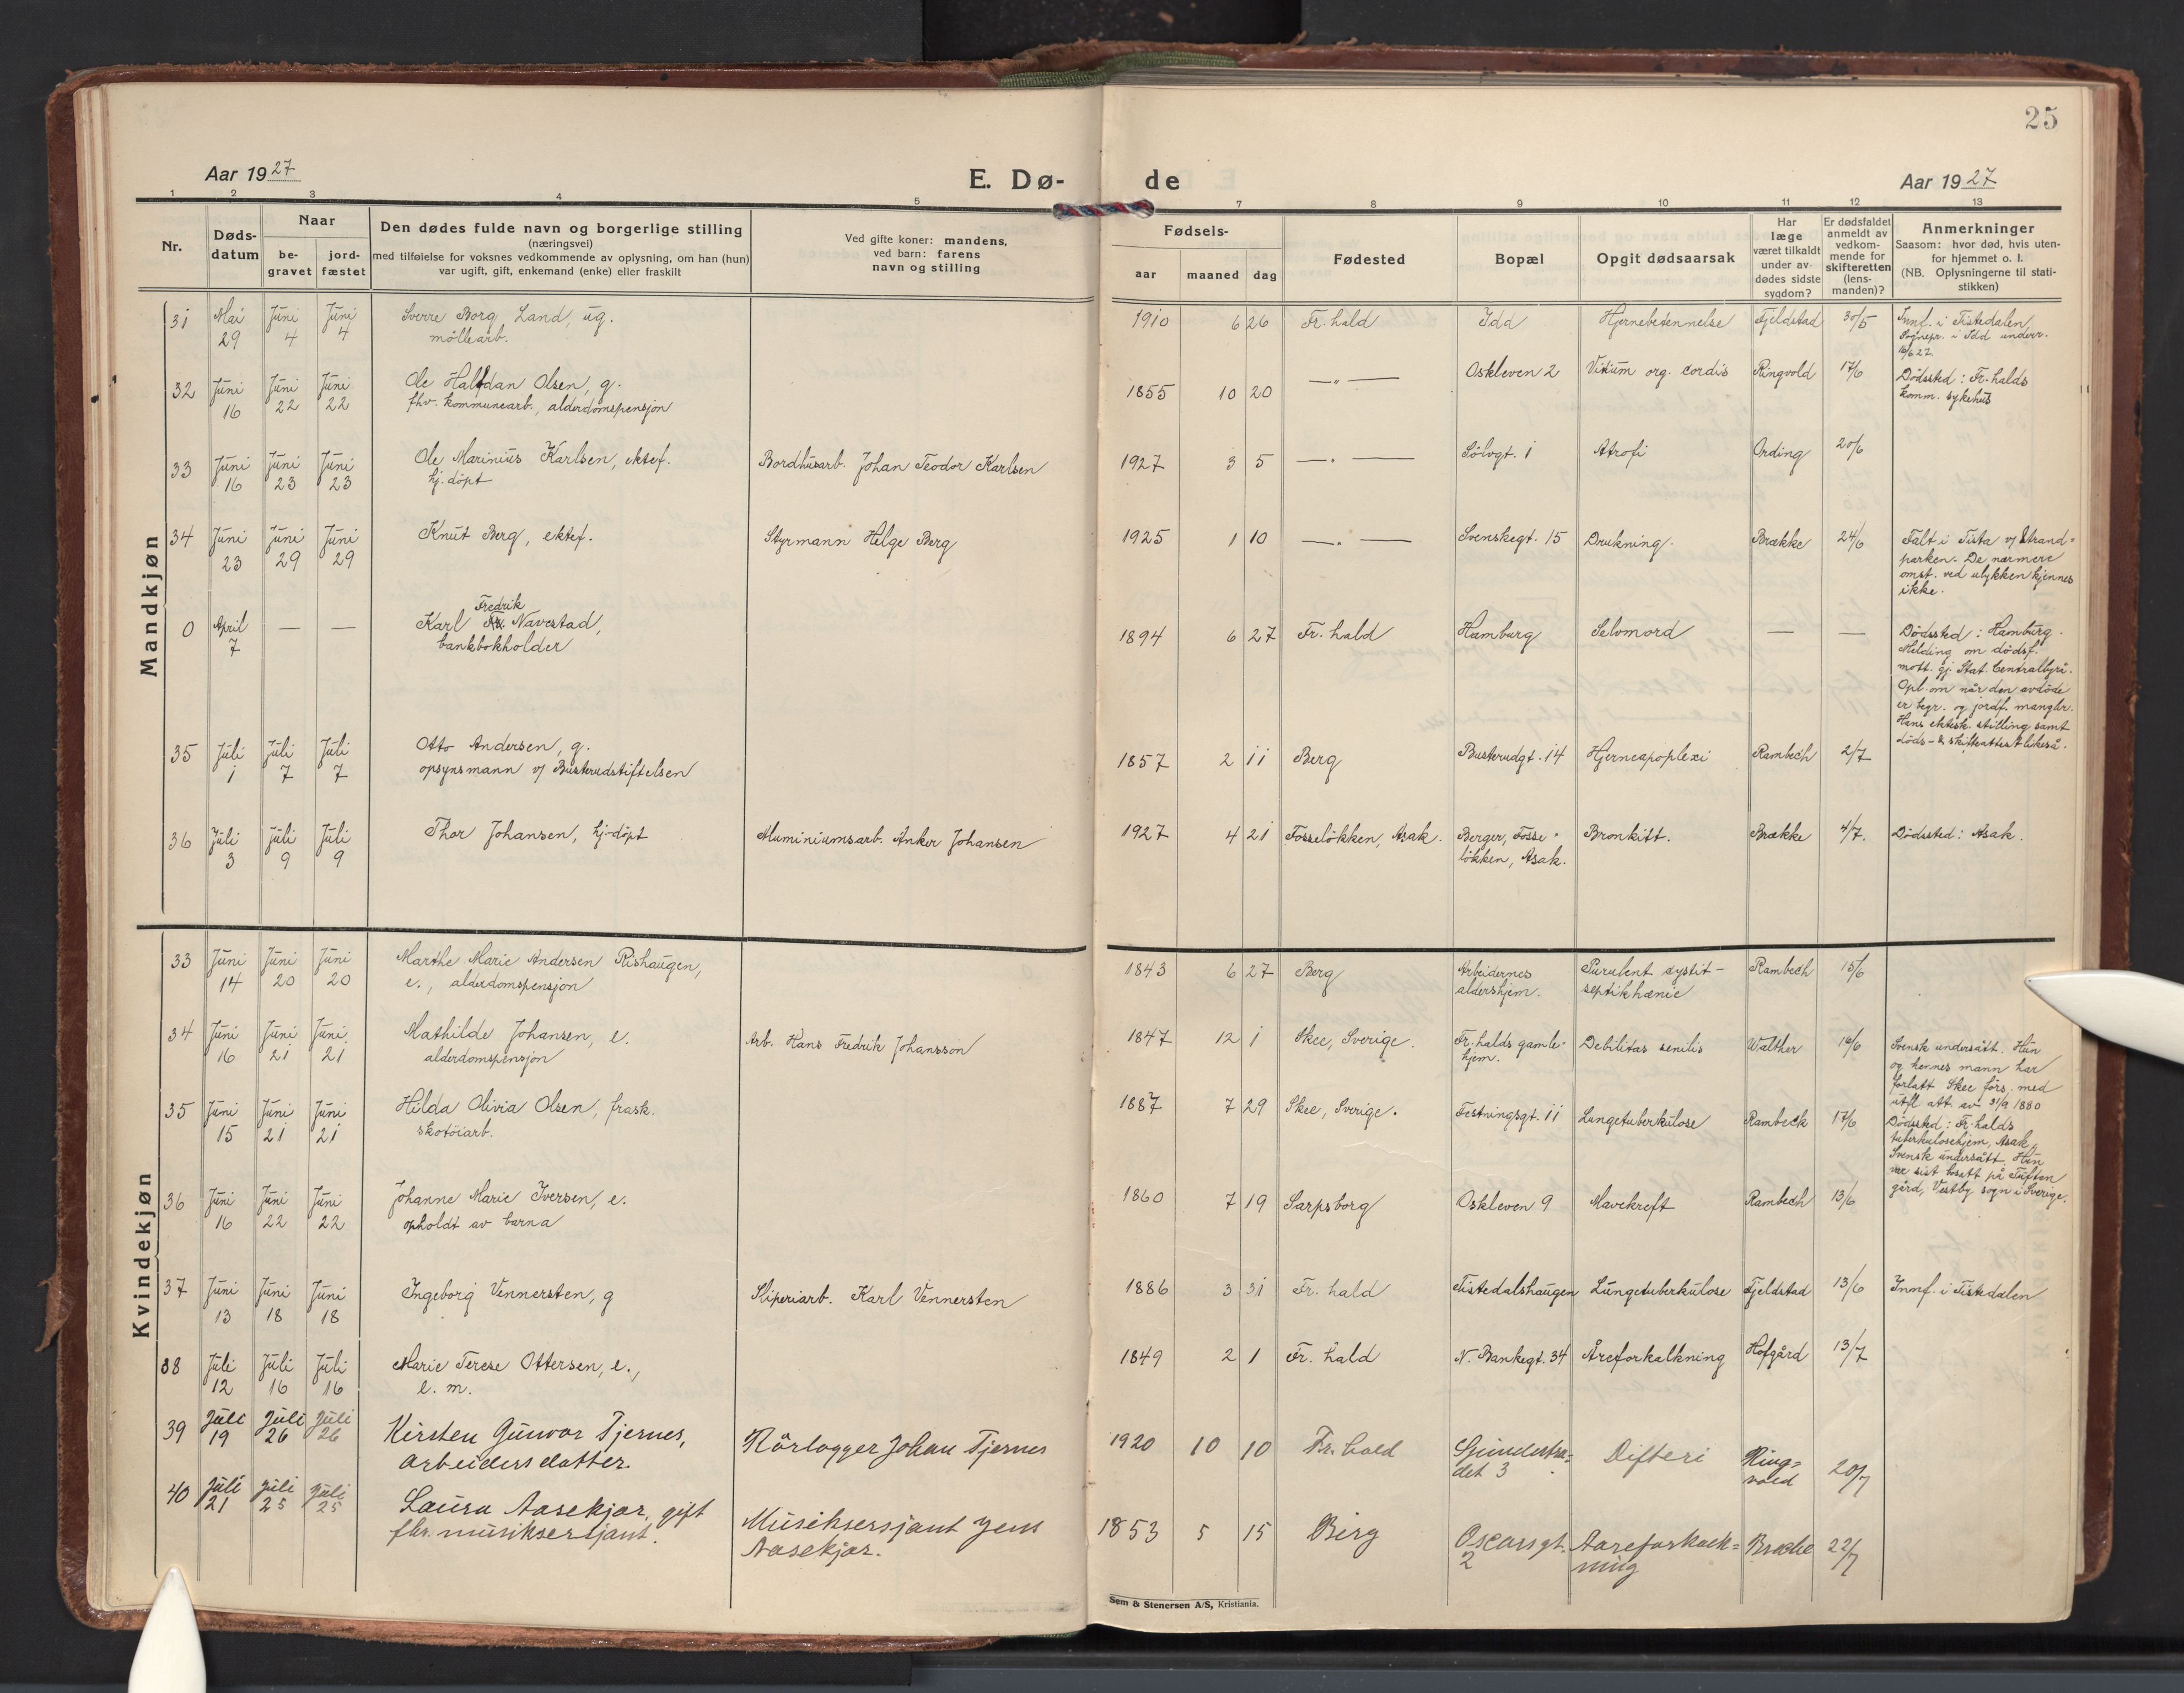 25
Aar 1927
E. Dø-
de
Aar 1927
1 2 3 4 5 7 8 9 10 11 12 13
Nr.
Døds-
datum
Naar
be-
gravet
jord-
fæstet
Den dødes fulde navn og borgerlige stilling
(næringsvei)
med tilføielse for voksnes vedkommende av oplysning, om han (hun)
var ugift, gift, enkemand (enke) eller fraskilt
Ved gifte koner: mandens,
ved barn: farens
navn og stilling
Fødsels-
aar maaned dag
Fødested
Bopæl
Opgit dødsaarsak
Har
læge
været tilkaldt
under av-
dødes sidste
sygdom?
Er dødsfaldet
anmeldt av
vedkom-
mende for
skifteretten
(lens-
manden)?
Anmerkninger
Saasom: hvor død, hvis uten-
for hjemmet o. l.
(NB. Oplysningerne til stati-
stikken)
Mandkjøn
31 Mai 29 Juni 4 Juni 4 Sverre Borg Land, ug.
møllearb.
1910 6 26 Fr. hald Idd Hjernebetennelse Fjeldstad 30/5
Innf. i Tistedalen
Sognepr. i Idd underr.
32 Juni 16 Juni 22 Juni 22 Ole Halfdan Olsen, g.
fhv. kommunearb., alderdomspensjon
1855 10 20 —„— Oskleven 2 Vitium org. cordis Ringvold 17/6
Dødssted: Fr. halds
komm. sykehus
33 Juni 16 Juni 23 Juni 23 Ole Marinius Karlsen, ektef.
hj. døpt
Bordhusarb. Johan Teodor Karlsen
1927 3 5 —„— Sølvgt. 1 Atrofi Ording 20/6
34 Juni 23 Juni 29 Juni 29 Knut Berg, ektef.
Styrmann Helge Berg
1925 1 10 —„— Svenskegt. 15 Drukning. Brække 24/6
Falt i Tista v/ Strand-
parken. De nærmere
omst. ved ulykken kjennes
ikke.
0 April 7 — — Karl Fredrik Navestad,
bankbokholder
1894 6 27 Fr. hald Hamburg Selvmord — —
Dødssted: Hamburg.
Melding om dødsf.
mott. gj. Stat. Centralbyrå.
Opl. om når den avdøde
er begr. og jordf. mangler.
Hans ektesk. stilling samt
døds- & skifteattest likeså.
35 Juli 1 Juli 7 Juli 7 Otto Andersen, g.
opsynsmann v/ Busterudstiftelsen
1857 2 11 Berg Busterudgt. 14 Hjerneapoplexi Rambech 2/7
36 Juli 3 Juli 9 Juli 9 Thor Johansen, hj-døpt
Aluminiumsarb. Anker Johansen
1927 4 21 Fosseløkken, Asak. Berger, Fosse-
løkken, Asak.
Bronkitt. Brække 4/7. Dødssted: Asak.
Kvindekjøn
33 Juni 14 Juni 20 Juni 20 Marthe Marie Andersen Rishaugen,
e., alderdomspensjon
1843 6 27 Berg Arbeidernes
aldershjem.
Purulent cystit-
septikhæmie
Rambech 15/6
34 Juni 16 Juni 21 Juni 21 Mathilde Johansen, e.
alderdomspensjon
Arb. Hans Fredrik Johansson
1847 12 1 Skee, Sverige. Fr. halds gamle-
hjem.
Debilitas senilis Walther 16/6
Svensk undersått. Hun
og hennes mann har
forlatt Skee førs. med
utfl. att. av 21/9 1880
35 Juni 15 Juni 21 Juni 21 Hilda Olivia Olsen, frask.
skotøiarb.
1887 7 29 Skee, Sverige. Festningsgt. 11 Lungetuberkulose Rambech 17/6
Dødssted: Fr. halds
tuberkulosehjem, Asak,
Svensk undersått. Hun
var sist bosatt på Tuftan
gård, Vestby sogn i Sverige.
36 Juni 16 Juni 22 Juni 22 Johanne Marie Iversen, e.
opholdt av barna
1860 7 19 Sarpsborg Oskleven 9 Mavekreft Rambech 13/6
37 Juni 13 Juni 18 Juni 18 Ingeborg Vennersten, g
Sliperiarb. Karl Vennersten
1886 3 31 Fr. hald Tistedalshaugen Lungetuberkulose Fjeldstad 13/6 Innf. i Tistedalen
38 Juli 12 Juli 16 Juli 16 Marie Terese Ottersen, e.,
e. m.
1849 2 1 Fr. hald N. Bankegt. 34 Åreforkalkning Hofgård 13/7
39 Juli 19 Juli 26 Juli 26 Kirsten Gunvor Tjernes,
arbeidersdatter.
Rørlegger Johan Tjernes
1920 10 10 Fr. hald
det 3
Difteri Ring-
vold
20/7
40 Juli 21 Juli 25 Juli 25 Laura Aasekjær, gift
fhv. musiksersjant.
Musiksersjant Jens
Aasekjær.
1853 5 15 Berg Oscarsgt.
2
Aareforkalk-
ning
Brække 22/7
Sem & Stenersen A/S, Kristiania.